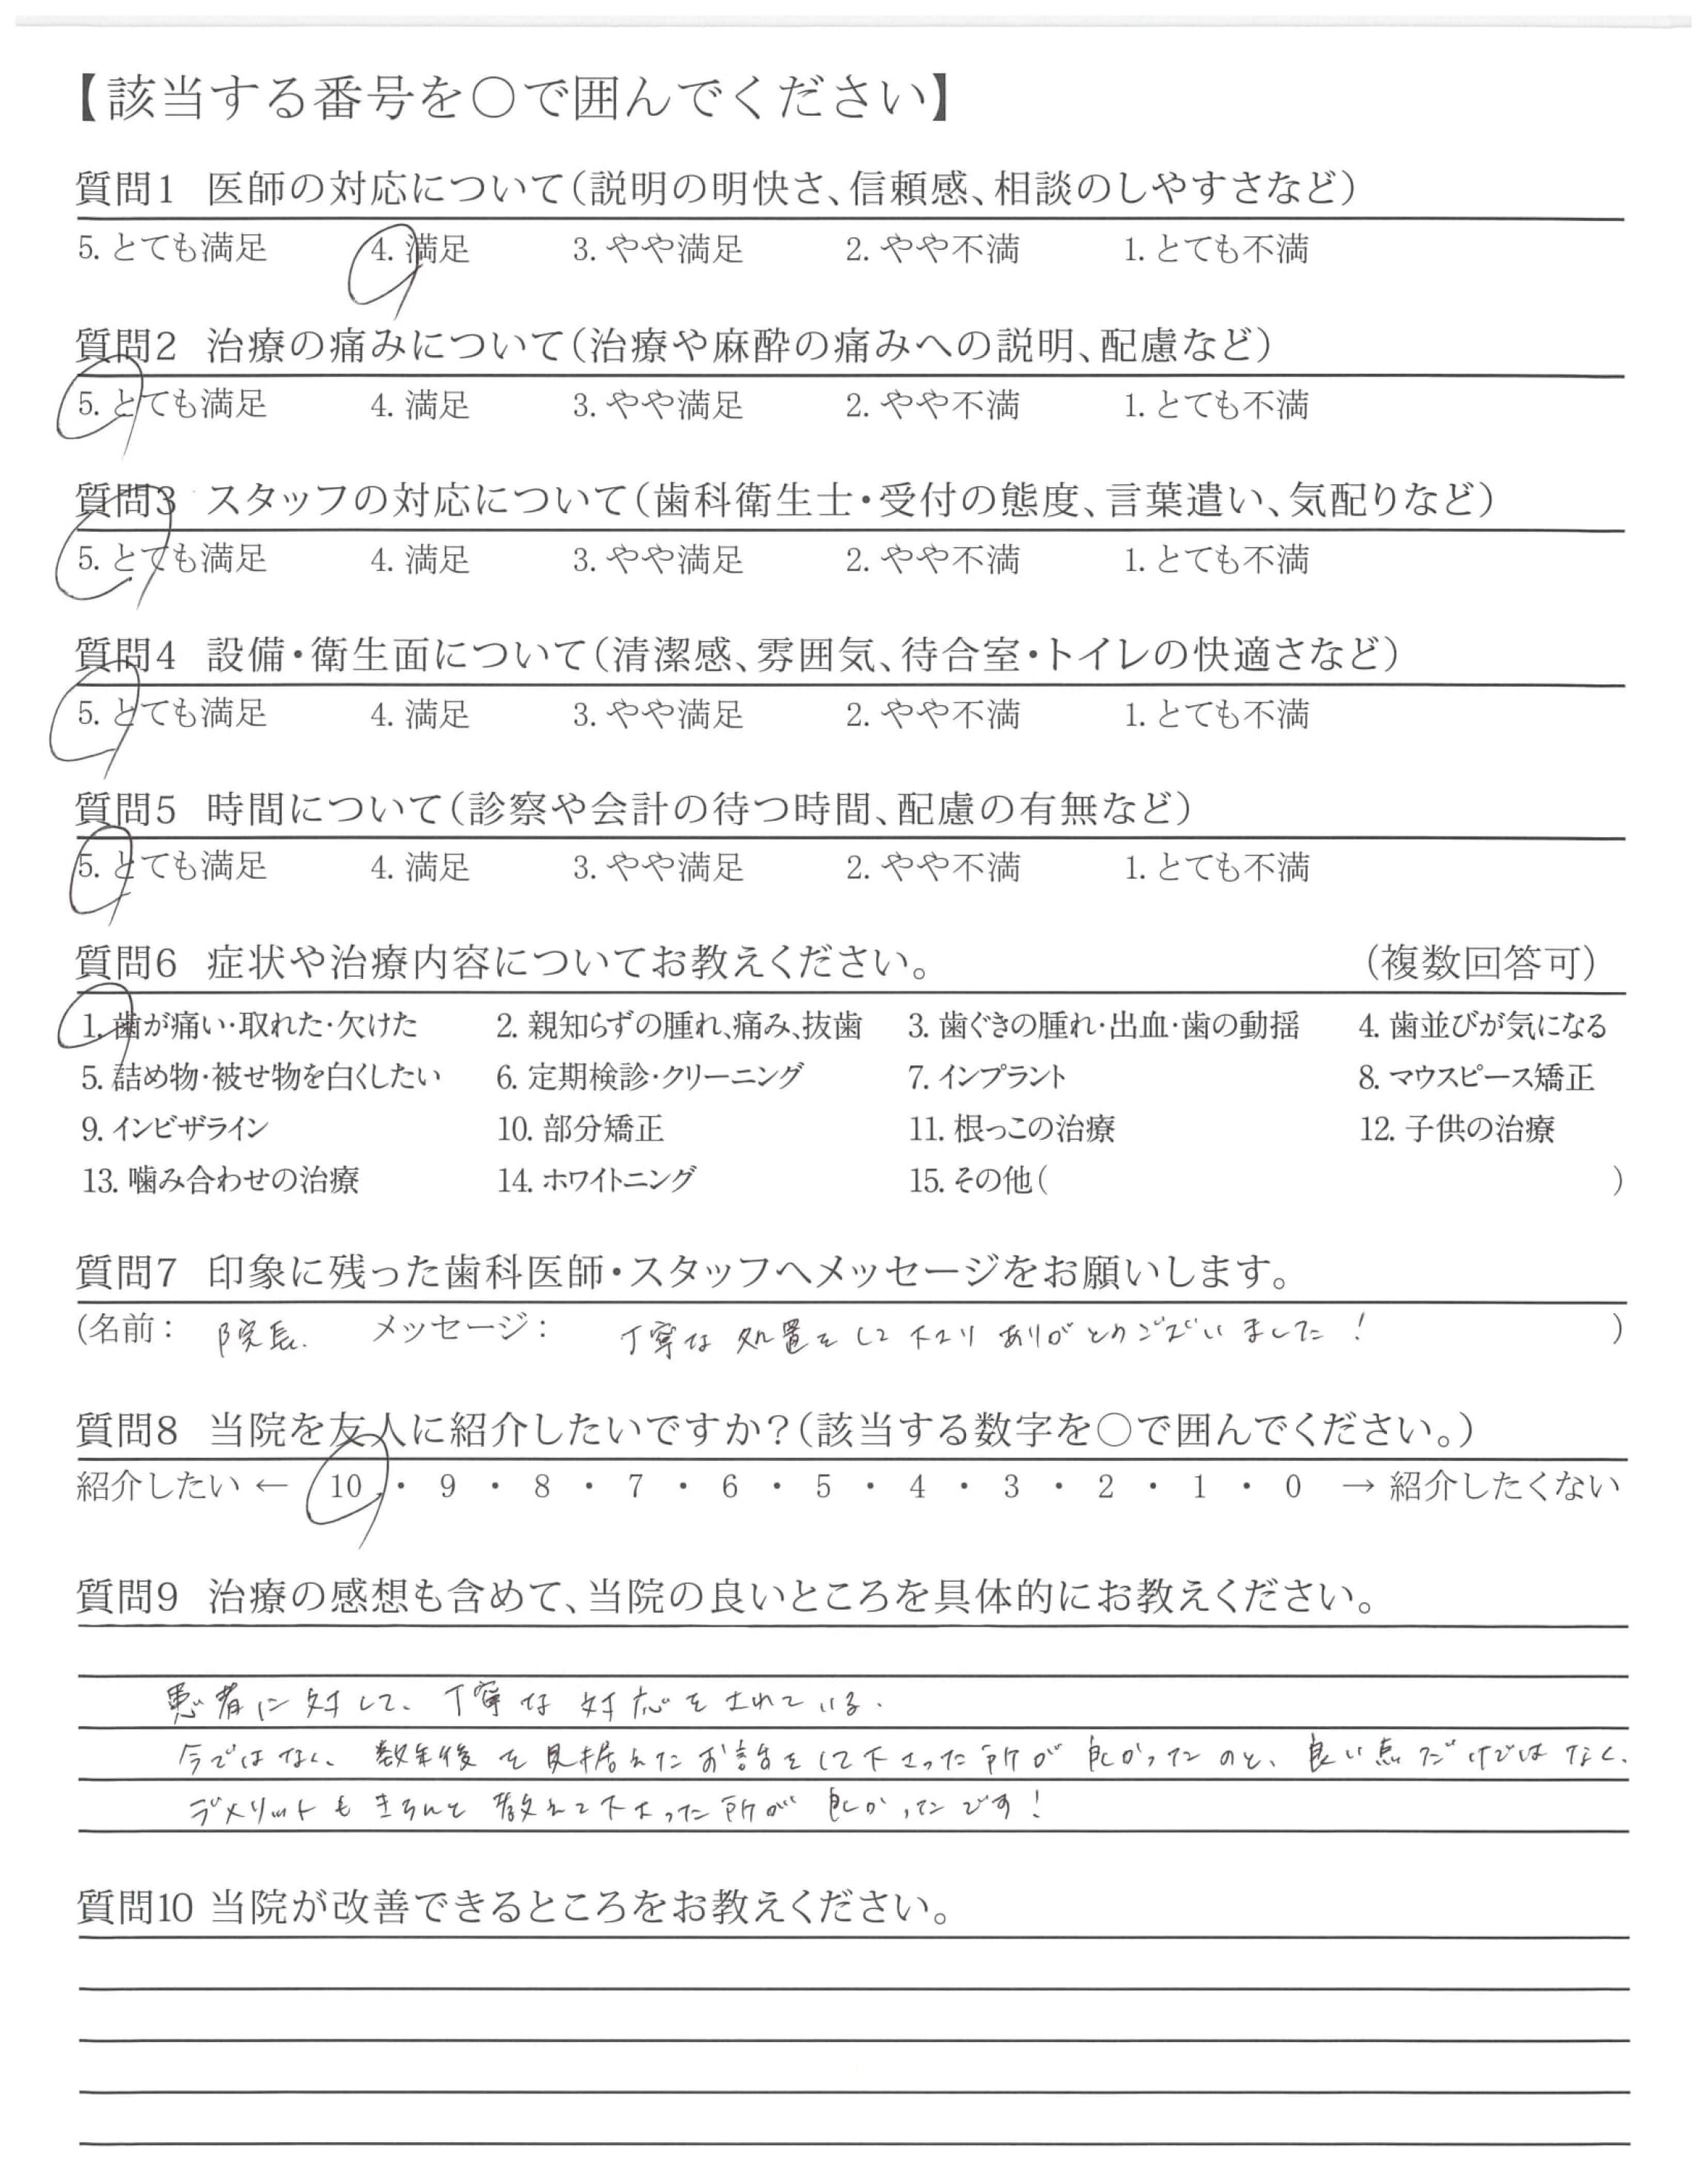 【該当する番号を○で囲んでください】
質問1 医師の対応について(説明の明快さ、信頼感、相談のしやすさなど)
5. とても満足 4. 満足 3. やや満足 2. やや不満 1. とても不満
質問2 治療の痛みについて(治療や麻酔の痛みへの説明、配慮など)
5. とても満足 4. 満足 3. やや満足 2. やや不満 1. とても不満
質問3 スタッフの対応について(歯科衛生士・受付の態度、言葉遣い、気配りなど)
5. とても満足 4. 満足 3. やや満足 2. やや不満 1. とても不満
質問4 設備・衛生面について(清潔感、雰囲気、待合室・トイレの快適さなど)
5. とても満足 4. 満足 3. やや満足 2. やや不満 1. とても不満
質問5 時間について(診察や会計の待つ時間、配慮の有無など)
5. とても満足 4. 満足 3. やや満足 2. やや不満 1. とても不満
質問6 症状や治療内容についてお教えください。 (複数回答可)
1. 歯が痛い・取れた・欠けた 2. 親知らずの腫れ、痛み、抜歯 3. 歯ぐきの腫れ・出血・歯の動揺 4. 歯並びが気になる
5. 詰め物・被せ物を白くしたい 6. 定期検診・クリーニング 7. インプラント 8. マウスピース矯正
9. インビザライン 10. 部分矯正 11. 根っこの治療 12. 子供の治療
13. 噛み合わせの治療 14. ホワイトニング 15. その他( )
質問7 印象に残った歯科医師・スタッフへメッセージをお願いします。
(名前: 院長. メッセージ: 丁寧な処置をして下さり ありがとうございました! )
質問8 当院を友人に紹介したいですか?(該当する数字を○で囲んでください。)
紹介したい ← 10 ・ 9 ・ 8 ・ 7 ・ 6 ・ 5 ・ 4 ・ 3 ・ 2 ・ 1 ・ 0 → 紹介したくない
質問9 治療の感想も含めて、当院の良いところを具体的にお教えください。
患者に対して、丁寧な対応をされている.
今ではなく、数年後を見据えたお話をして下さった所が良かったのと、良い点だけではなく、
デメリットもきちんと教えて下さった所が良かったです!
質問10 当院が改善できるところをお教えください。